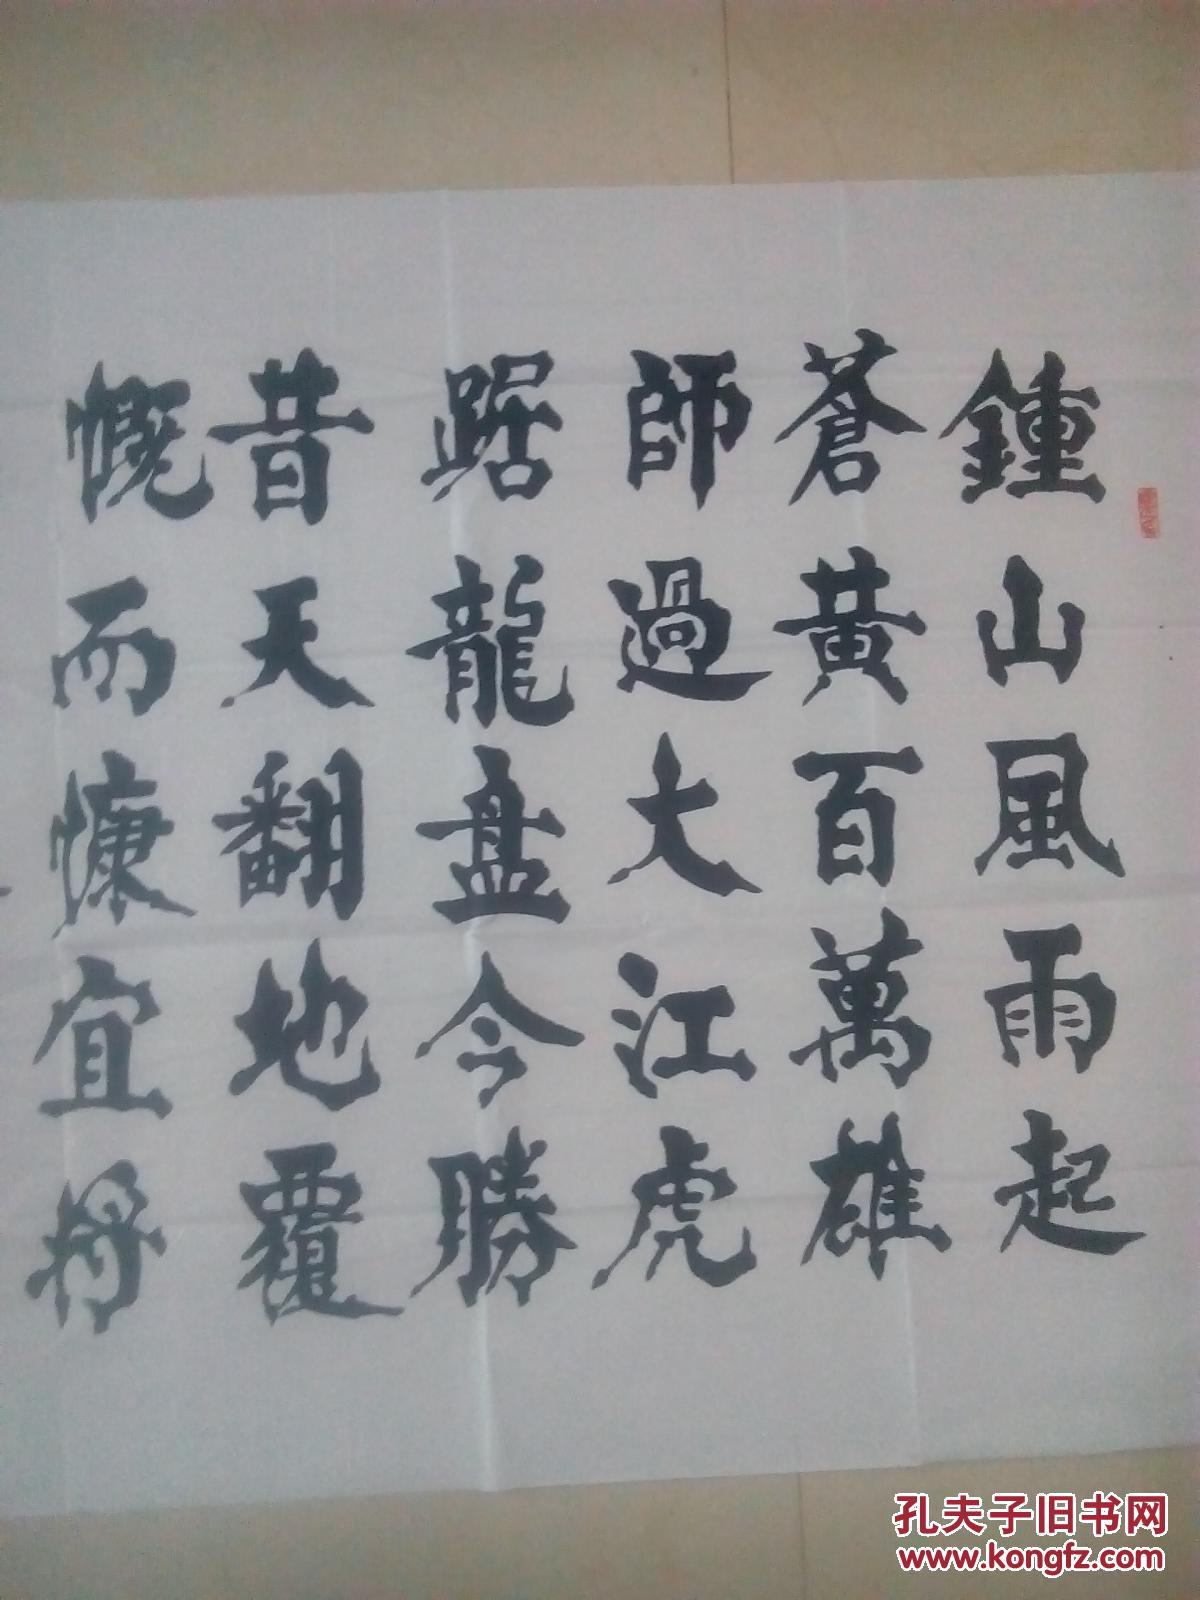 鍾山風雨起
蒼黃百萬雄
師過大江虎
踞龍盘今勝
昔天翻地覆
慨而慷宜将
孔夫子旧书网
www.kongfz.com